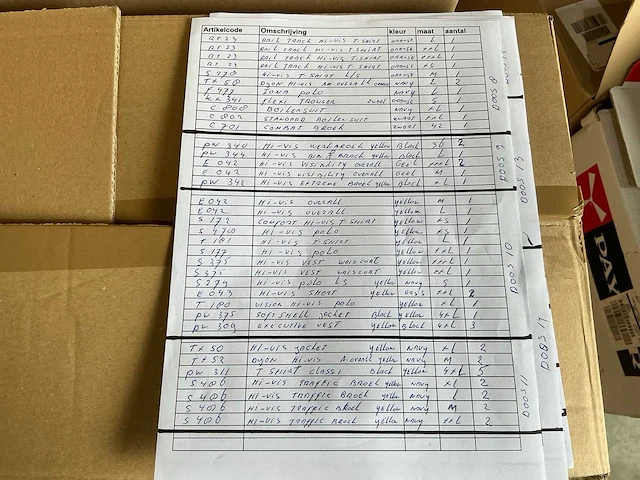 Artikelcode Omschrijving kleur maat aantal
RT 23 RAIL TRACK HI-VIS T-SHIRT ORANSE L 1
RT 23 RAIL TRACK HI-VIS T-SHIRT ORANSE XXL 1
RT 23 RAIL TRACK HI-VIS T-SHIRT ORANSE XL 1
RT 23 RAIL TRACK HI-VIS T-SHIRT ORANSE XS 1
S 278 HI-VIS T SHIRT L/S ORANSE M 1
TX 50 DYON HI-VIS AR OVERALL NAVY L 2
F 477 IONA POLO NAVY L 1
KX 341 FLEXI TROUSER ZWART ORANSE S 1
C 808 BOILERSUIT NAVY XL 1
C 802 STANDARD BOILERSUIT ZWART XXL 1
C 701 COMBAT BROEK ZWART 42 1
PW 340 HI-VIS WERKBROEK Yellow Black 36 2
PW 344 HI-VIS BIB & BRACH Yellow Black L 1
E 042 HI-VIS VISIBILITY OVERALL GEEL XXL 2
E 042 HI-VIS VISIBILITY OVERALL Geel M 1
PW 342 HI-VIS EXTREME BROEK Yellow Black XL 1
E 042 HI-VIS OVERALL Yellow M 1
E 042 HI-VIS OVERALL Yellow L 1
S 172 COMFORT HI-VIS T SHIRT Yellow XS 1
S 470 HI-VIS POLO Yellow XS 1
T 181 HI-VIS T-SHIRT Yellow L 1
S 177 HI-VIS POLO Yellow XXL 1
S 375 HI-VIS VEST WAISCOAT Yellow XXL 1
S 375 HI-VIS VEST WAISCOAT Yellow XXL 1
S 279 HI-VIS POLO LS Yellow NAVY S 1
E 043 HI-VIS SHORT Yellow XXL 2
T 180 VISION HI-VIS POLO Yellow XL 1
PW 375 SOFTSHELL JACKET Black Yellow 4XL 1
PW 309 EXECUTIVE VEST Yellow Black 4XL 3
TX 50 HI-VIS JACKET Yellow NAVY XL 2
TX 52 DYON HI-VIS A.overall Yellow NAVY M 2
PW 311 T SHIRT CLASSI Black Yellow 4XL 5
S 406 HI-VIS TRAFFIC BROEK Yellow NAVY XL 2
S 406 HI-VIS TRAFFIC BROEK Yellow NAVY L 2
S 406 HI-VIS TRAFFIC BROEK Yellow NAVY M 2
S 406 HI-VIS TRAFFIC BROEK Yellow NAVY XXL 2
DOOS 8
DOOS 9
DOOS 10
DOOS 11
DOOS 13
DOOS 14
PAY